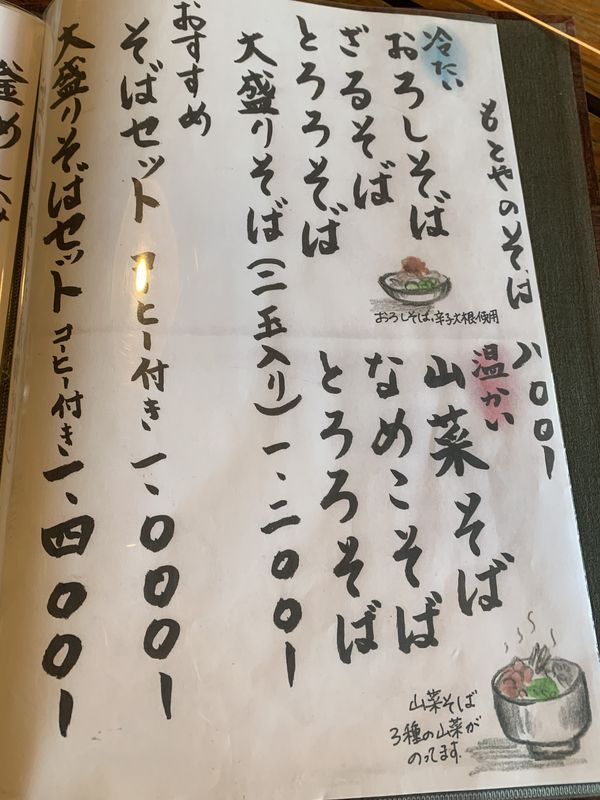 もとやのそば 八〇〇ー
冷たい
おろしそば
ざるそば
とろろそば
おろしそば、辛子大根使用
温かい
山菜そば
なめこそば
とろろそば
山菜そば
3種の山菜が
のってます。
大盛りそば(二玉入り)一、二〇〇ー
おすすめ
そばセット コーヒー付き 一、〇〇〇ー
大盛りそばセット コーヒー付き 一、四〇〇ー
釜め